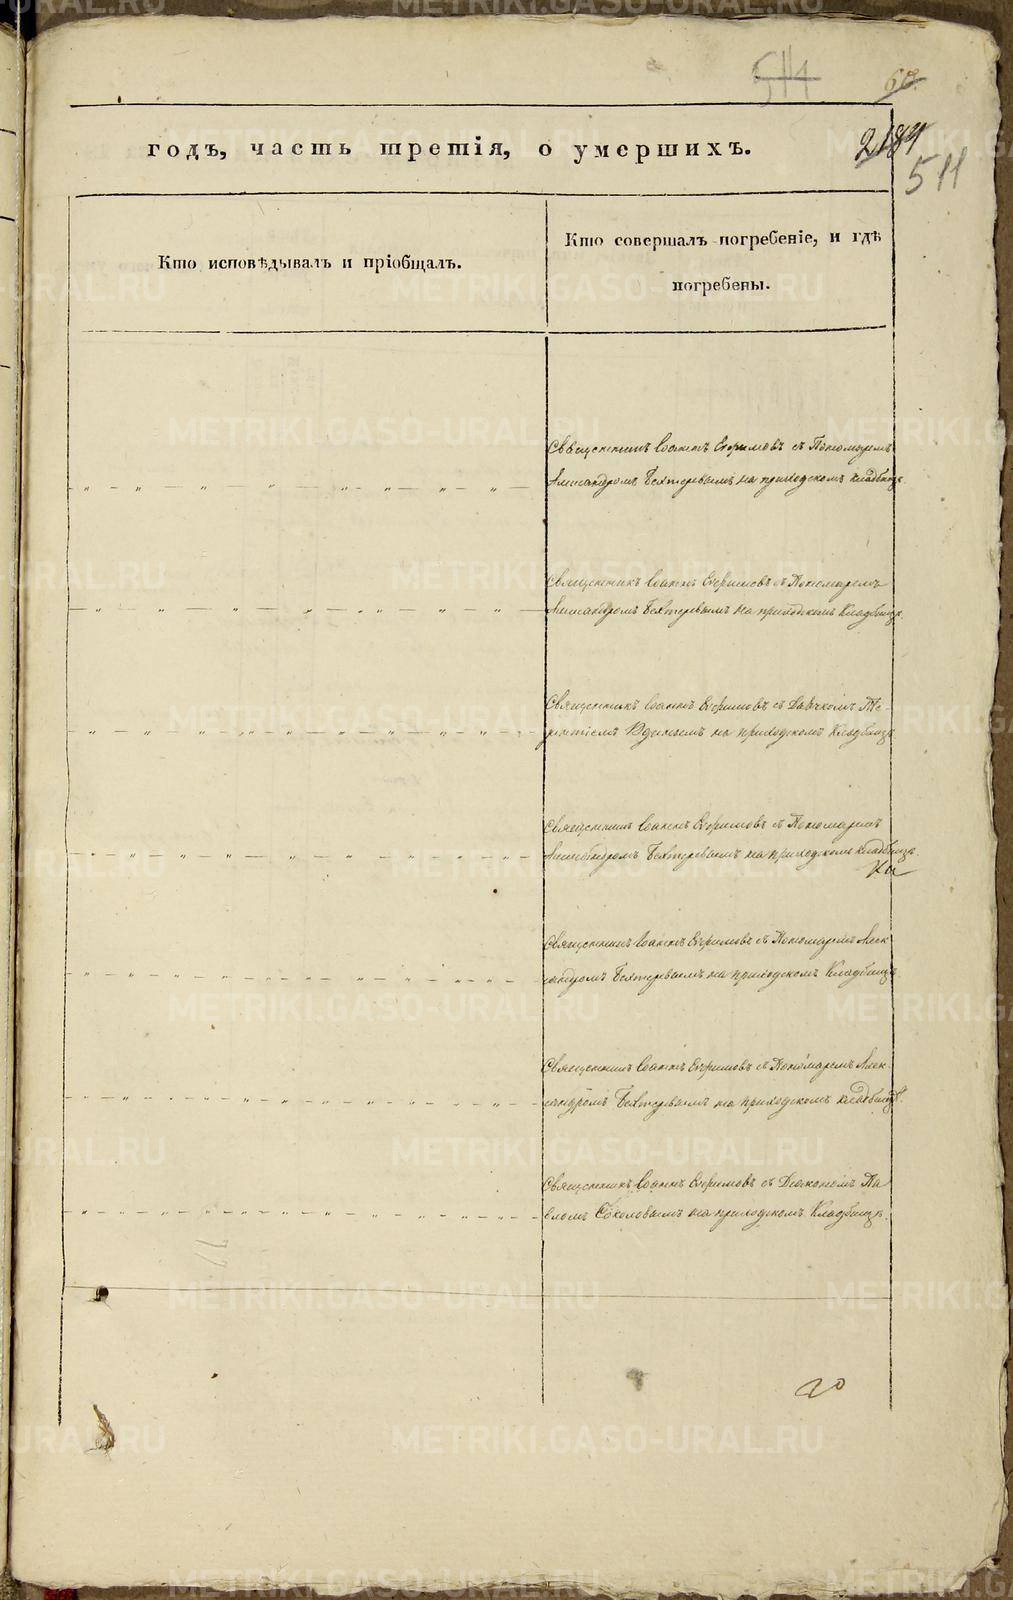 514
60
годъ, часть третія, о умершихъ.
2184
511
Кто исповѣдывалъ и пріобщалъ.
Кто совершалъ погребеніе, и гдѣ
погребены.
Священникъ Іоаннъ Ефимовъ съ Пономаремъ
Александромъ Бехтеревымъ на приходскомъ кладбищѣ.
Священникъ Іоаннъ Ефимовъ съ Пономаремъ
Александромъ Бехтеревымъ на приходскомъ Кладбищѣ.
Священникъ Іоаннъ Ефимовъ съ Дьячкомъ Те-
рентіемъ на приходскомъ Кладбищѣ.
Священникъ Іоаннъ Ефимовъ съ Пономаремъ
Александромъ Бехтеревымъ на приходскомъ кладбищѣ.
Священникъ Іоаннъ Ефимовъ съ Пономаремъ Алек
сандромъ Бехтеревымъ на приходскомъ Кладбищѣ.
Священникъ Іоаннъ Ефимовъ съ Пономаремъ Алек
сандромъ Бехтеревымъ на приходскомъ кладбищѣ.
Священникъ Іоаннъ Ефимовъ съ Діакономъ Па
вломъ Соколовымъ на приходскомъ Кладбищѣ.
METRIKI.GASO-URAL.RU